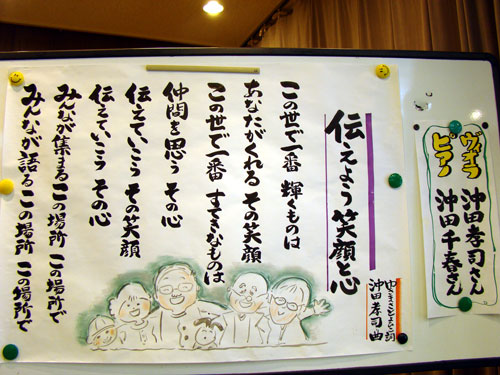 伝えよう笑顔と心
沖田孝司 曲
この世で一番 輝くものは
あなたがくれる その笑顔
この世で一番 すてきなものは
仲間を思う その心
伝えていこう その笑顔
伝えていこう その心
みんなが集まる この場所 この場所で
みんなが語る この場所 この場所で
ヴィオラ 沖田孝司さん
ピアノ 沖田千春さん